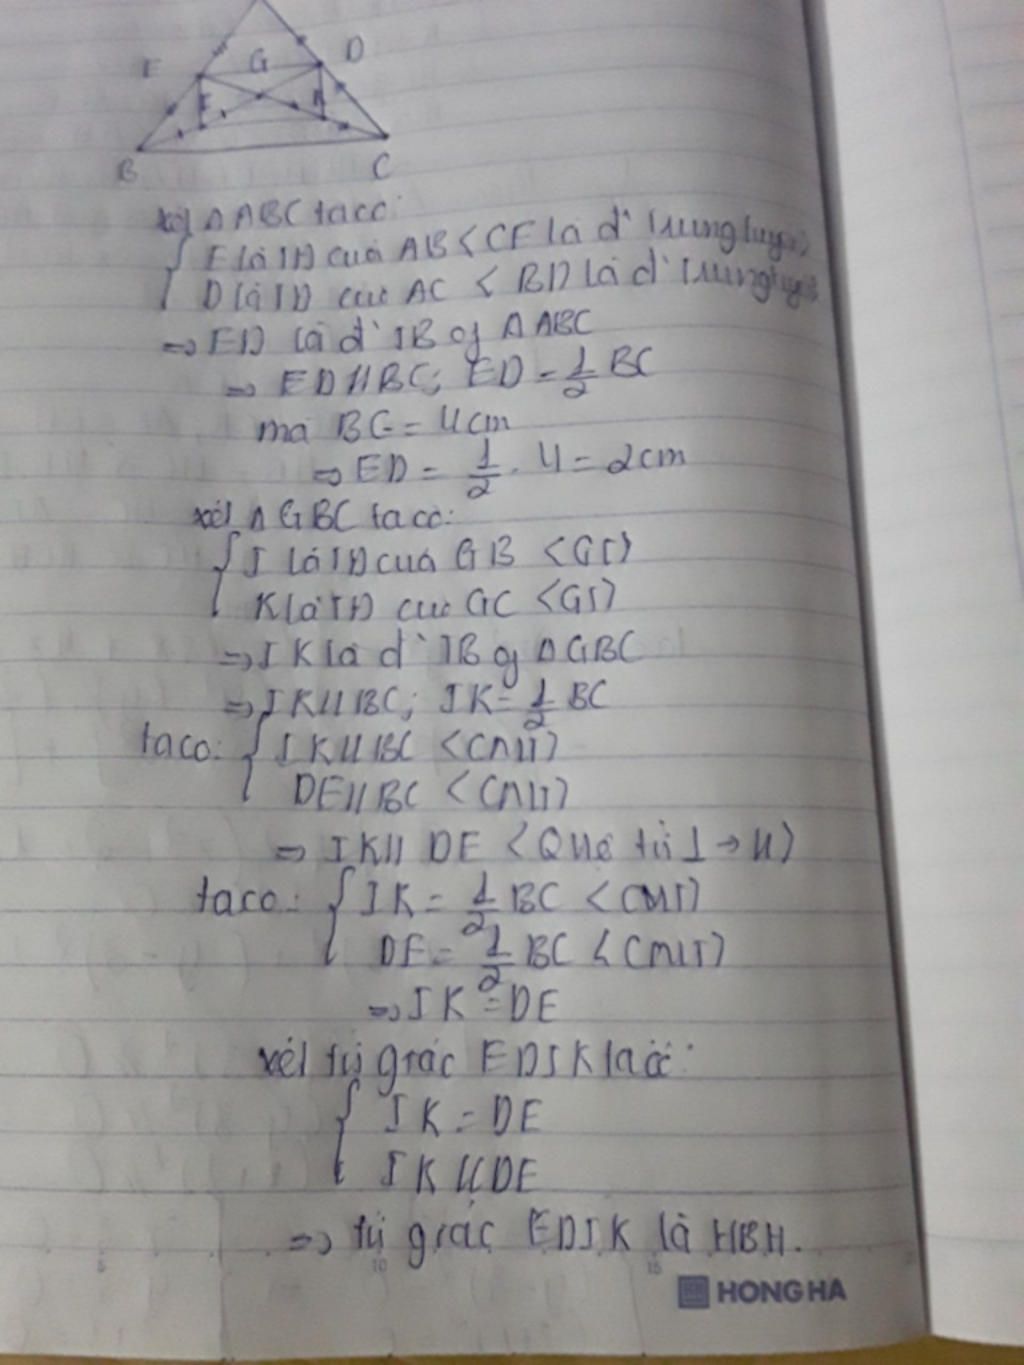 E G D
I K
B C
xét Δ ABC ta có:
E là TĐ của AB <CE là đ' trung tuyến>
D là TĐ của AC < BD là đ' trung tuyến
=> ED là đ' TB of Δ ABC
=> ED // BC; ED = 1/2 BC
mà BC = 4cm
=> ED = 1/2 . 4 = 2cm
xét Δ GBC ta có:
I là TĐ của GB <GT>
K là TĐ của GC <GT>
=> IK là đ' TB of Δ GBC
=> IK // BC; IK = 1/2 BC
ta có: IK // BC <CMT>
DE // BC <CMT>
=> IK // DE <Quê từ ⊥ -> //>
ta có: IK = 1/2 BC <CMT>
DE = 1/2 BC <CMT>
=> IK = DE
xét tứ giác EDIK ta có:
IK = DE
IK // DE
=> tứ giác EDIK là HBH.
5 10 15
HONG HA